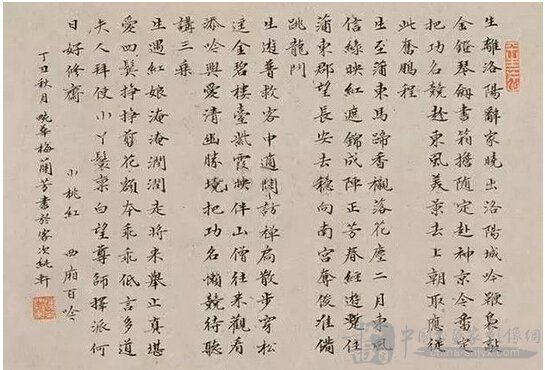 生離洛陽辭家曉出洛陽城吟鞭敲
金鐙琴劍書箱擔隨定赴神京今番
把功名競赴東風去上朝取應從
此奮鵬程
生至蒲東馬蹄香襯落花塵二月東風
信綠映紅遮錦成陣正芳春經遊暫住
蒲東郡望長安去穩向南宮奪俊准備
跳龍門
生遊普救客中適閒訪禪扃散步穿松
逕金碧樓臺紫霞映伴山僧往來觀看
添吟興愛清幽勝境把功名懶競待聽
講三乘
生遇紅娘淹淹潤潤走將來舉止真堪
愛四鬢掙掙剪花額本乖乖低言多道
夫人拜使小丫鬟稟白望尊師擇派何
日好修齋 小桃紅 西廂百吟
丁丑秋月 畹華梅蘭芳書於